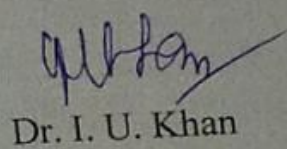 Dr. I. U. Khan